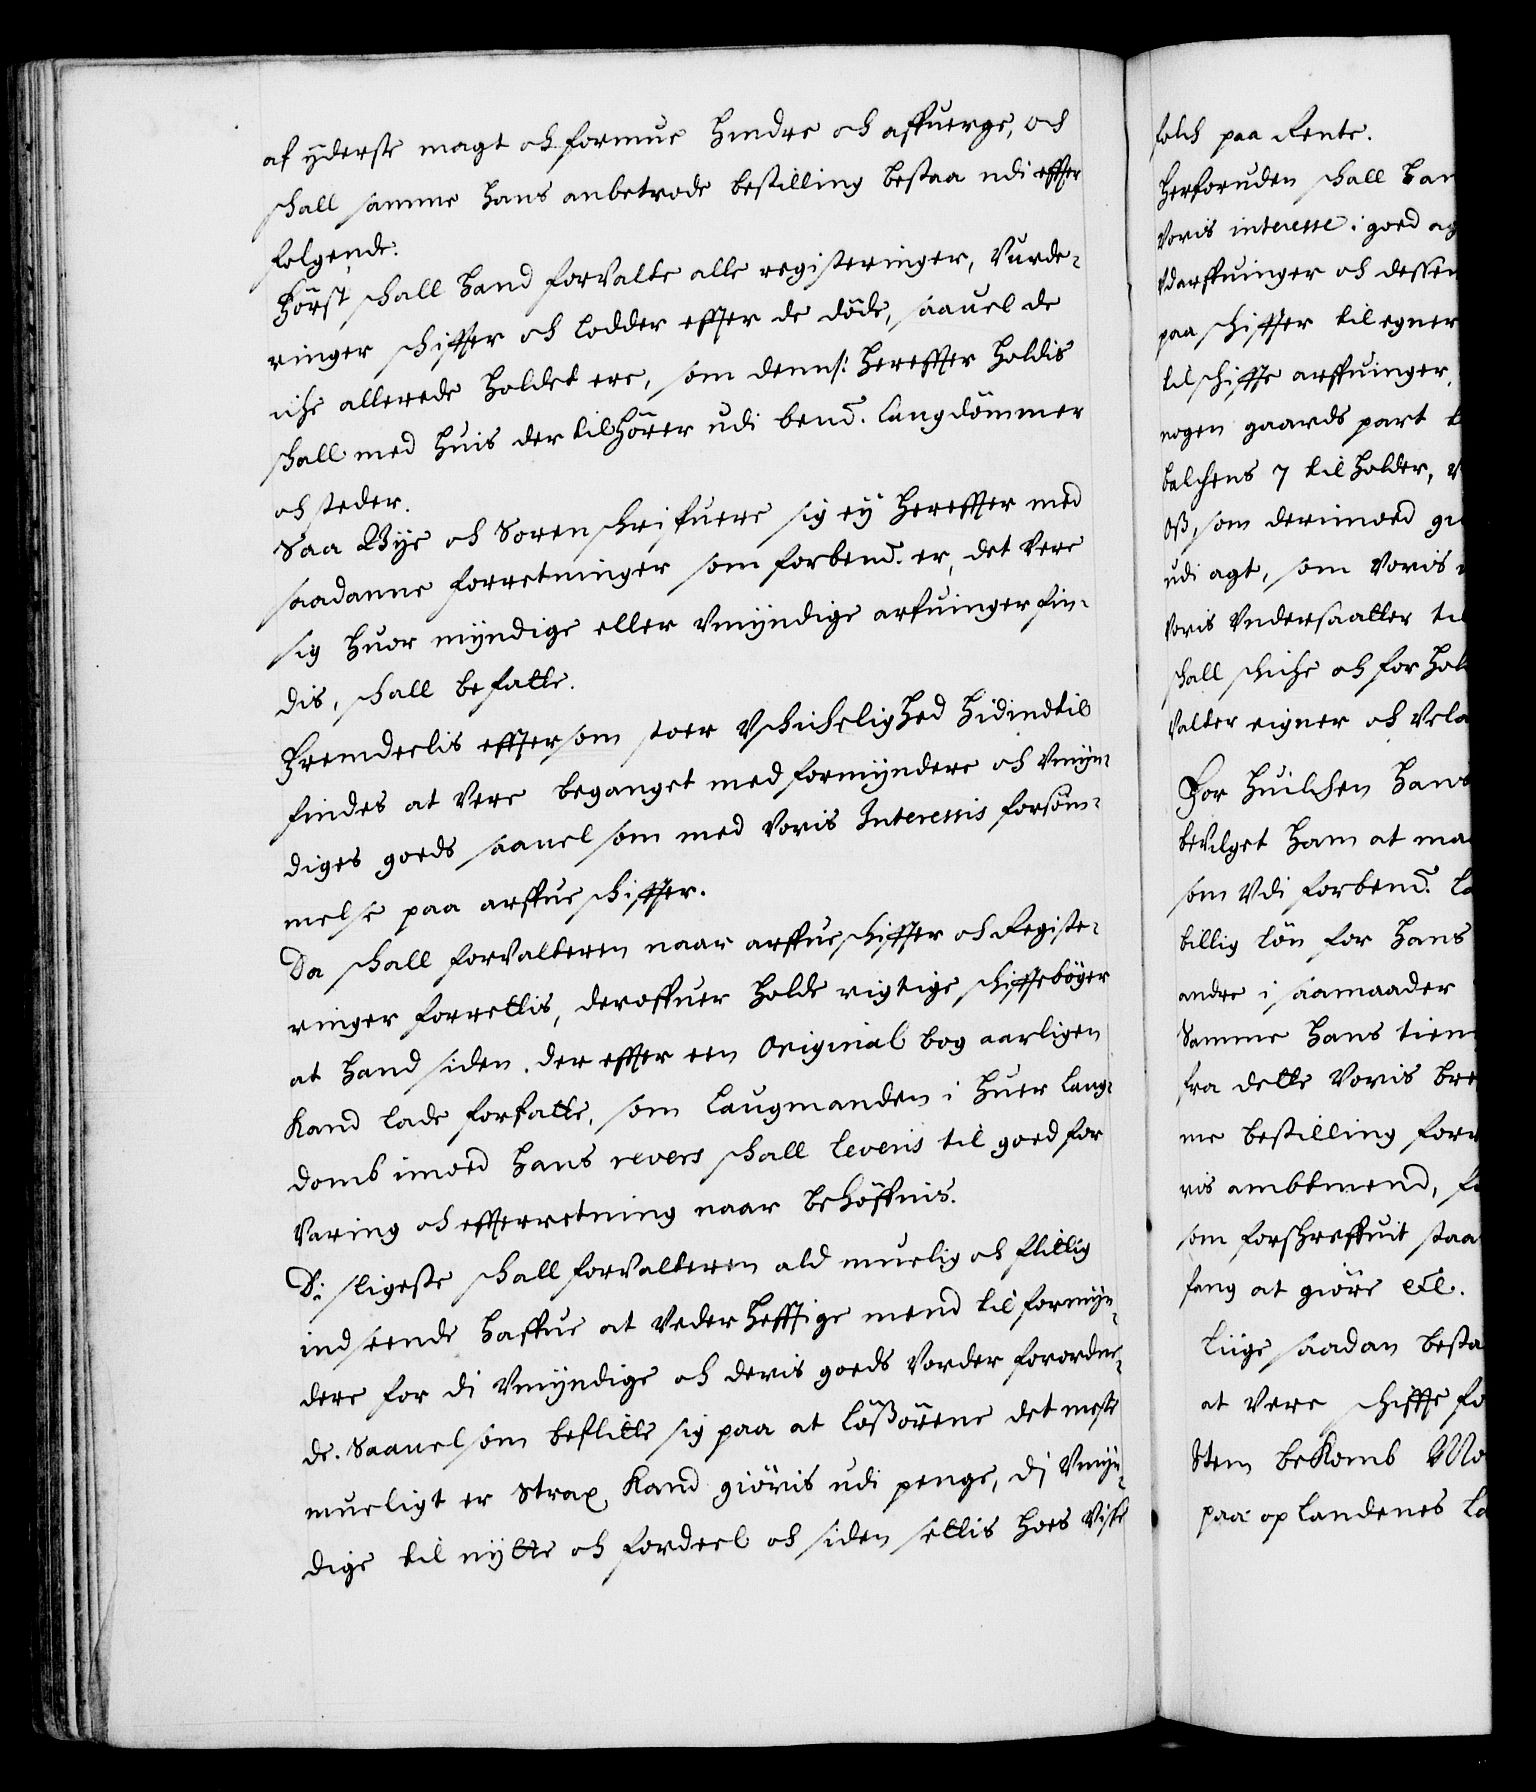 af yderste magt och formue hindre och affuerge, och
schall samme hans anbetrode bestilling bestaa udi effter
folgende.
Först schall hand forvalte alle registeringer, Vurde-
ringer schiffter och lodder effter de döde, saauel de
iche allerede holdet ere, som dennf: hereffter holdis
schall med huis der tilhörer udi bemᵈ. Laugdömmer
och steder.
Saa Bÿe och Sorenschrifuere sig eÿ hereffter med
saadanne forretninger som forbemᵈ. er, det vere
sig huor mÿndige eller Vmÿndige arfuinger fin-
dis, schall befatte.
Fremdeelis efftersom stoer Vschicheligheed hidindtil
findes at vere beganget med formÿndere och Vmÿn-
diges goeds saauelsom med Voris Interessis forsöm-
melse paa arffue schiffter.
Da schall forvalteren naar arffueschiffter och Registe-
ringer forrettis, deroffuer holde rigtige schifftebøger
at hand siden der effter een Original bog aarligen
Kand lade forfatte, som Laugmanden i huer Laug-
domb imoed hans revers schall leveris til goed for
Varing och effterretning naar behöffuis.
Di ligeste schall forvalteren ald muelig och flittig
indseende haffue at Vederhefftige mend til formÿn-
dere for di Vmÿndige och deris goeds Vorder forordne-
de. Saauelsom beflitte sig paa at lößörene det meste
mueligt er strax Kand giöris udi penge, di Vmÿn-
dige til nÿtte och fordeel och siden settis hoes Visse
folch paa Rente.
Herforuden schall han
Voris interesse i goed ag
Vdarffuinger och dessen
paa schiffter til egner
til schiffte arffuinger,
nogen gaards part
balchens 7 til holder,
Oß, som derimoed
udi agt, som Voris
Voris Vndersaatter til
schall schiche och forhol
Valter eigner och Vel
For huilchen hans
beVilget ham at ma
som Vdi forbemᵈ. La
billig lön for hans
andre i saamaader
Samme hans tien
fra dette Voris bre
me bestilling forr
ris ambtmend,
som forschreffuit staa
fang at giöre etc.
Liige saadan besta
at vere schiffte fo
Stem beKomb Mo
paa oplandenes La